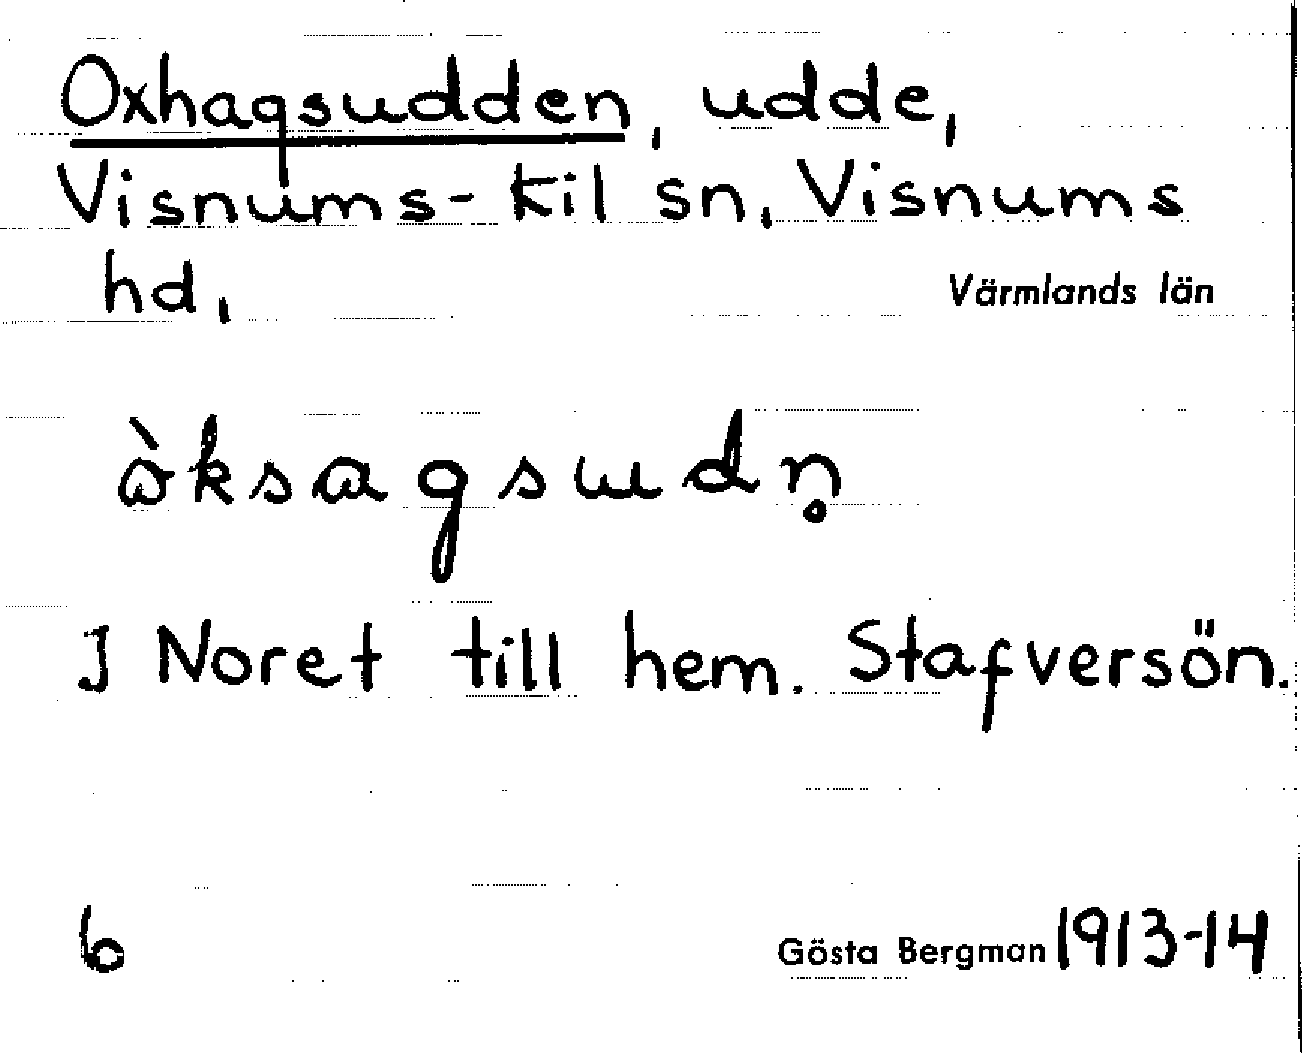 Oxhagsudden, udde,
Visnums-Kil sn, Visnums
hd, Värmlands län
òksagsudn̥
I Noret till hem. Stafversön.
6 Gösta Bergman 1913-14